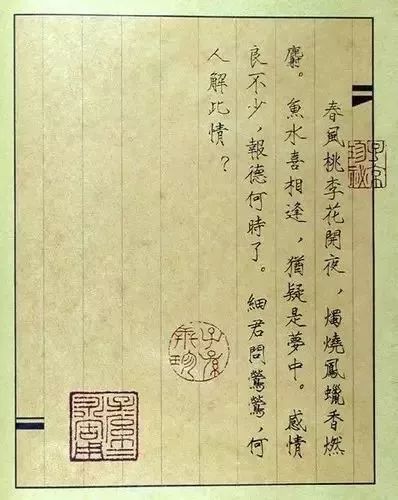 春風桃李花開夜，燭燒鳳蠟香燃
麝。魚水喜相逢，猶疑是夢中。感情
良不少，報德何時了。細君問鶯鶯，何
人解比情？